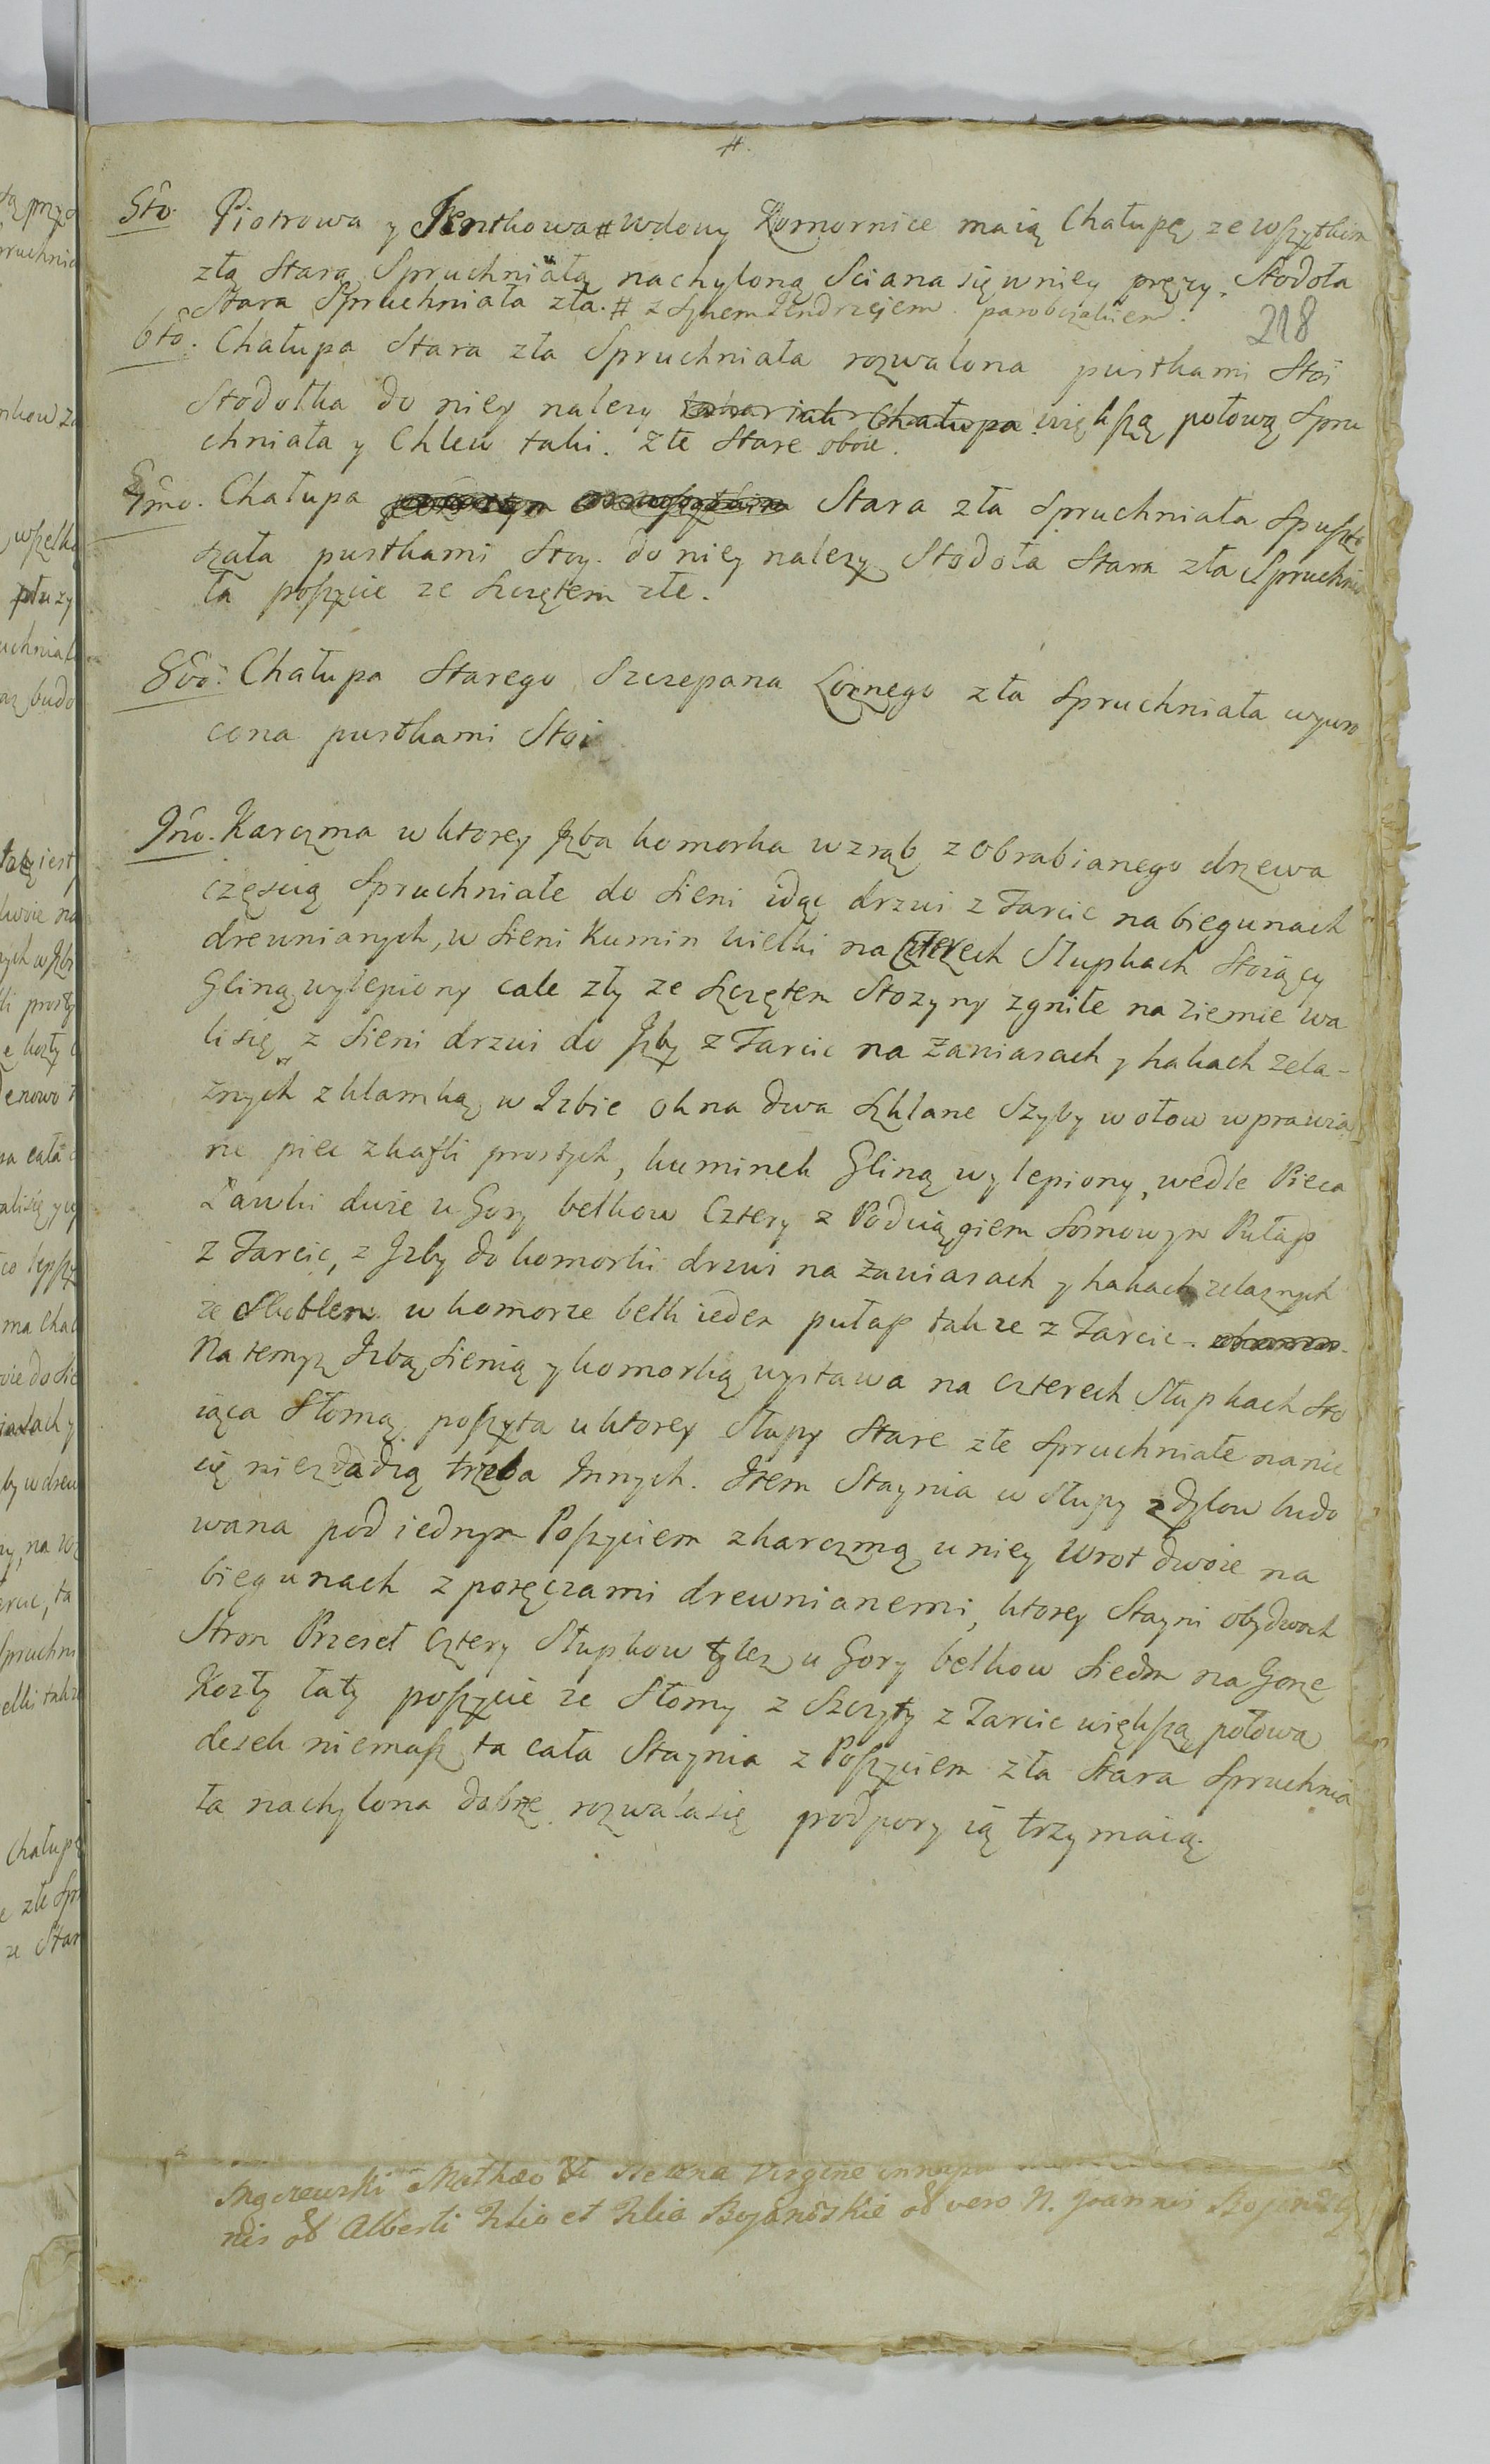 #.
5to. Piotrowa y Jentkowa # wdowy Komornice maią Chałupę ze wszytkim
złą Starą Spruchniałą nachyloną Sciana się w niey pręzy. Stodoła
Stara Spruchniała zła. # z Synem Jendrzejem parobczakiem.
218
6to. Chałupa Stara zła Spruchniała rozwalona pustkami Stoi
Stodołka do niey nalezy większą połową Spru
chniała y Chlew taki. złe Stare oboie.
7mo. Chałupa Stara zła Spruchniała Spusto
szała pustkami Stoy. do niey nalezy Stodoła Stara zła Spruchnia
ła poszycie ze Szczętem złe.
8vo. Chałupa Starego Szczepana zła Spruchniała wywro
cona pustkami Stoi
9no. Karczma w ktorey Jzba komorka w zrąb z obrabianego drzewa
częscią Spruchniałe do Sieni idąc drzwi z Tarcic na biegunach
drewnianych, w Sieni Kumin wielki na czterech Słupkach Stoiący
Gliną wylepiony cale zły ze Szczętem Stozyny zgniłe na ziemie wa
li się z Sieni drzwi do Jzby z Tarcic na zawiasach y hakach zela-
znych z klamką, w Izbie okna dwa Szklane Szyby w ołow wprawia
ne piec z kafli prostych, kuminek Gliną wylepiony, wedle Pieca
Ławki dwie u Gory belkow Cztery z Podciągiem Sosnowym Pułap
z Tarcic, z Jzby do komorki drzwi na zawiasach y hakach zelaznych
ze Skoblem w komorze belk ieden pułap takze z Tarcic.
Na temyz Jzbą Sienią y komorką wystawa na czterech Słupkach Sto
iąca Słomą poszyta u ktorey Słupy Stare złe Spruchniałe na nic
się niezdadzą trzeba Jnnych. Jtem Staynia w Słupy z dylow budo
wana pod iednym Poszyciem z karczmą u niey Wrot dwoie na
biegunach z poręczami drewnianemi, ktorey Stayni obydwoch
Stron Przeseł cztery Słupkow tylez u Gory belkow Siedm na Gorze
Kozły łaty poszycie ze Słomy z Szczyty z Tarcic większą połową
desek niemasz ta cała Staynia z Poszyciem zła Stara Spruchnia
ła nachylona dobrze rozwala się podpory ią trzymaią.
Mathæo Virgine
nis ob Alberti et Joannis